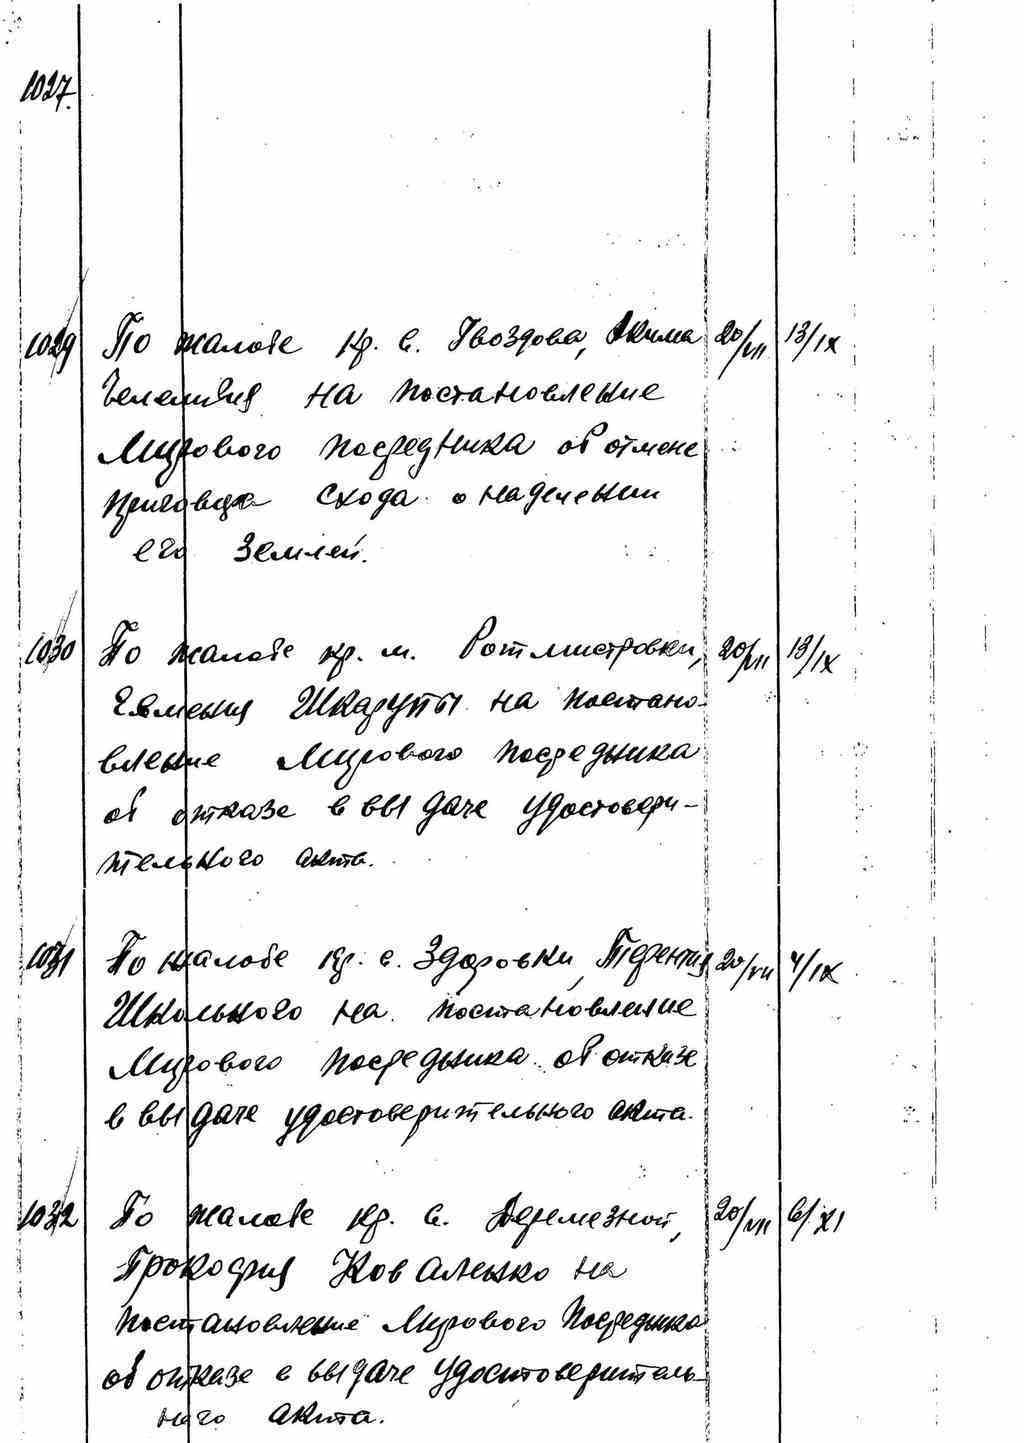 1027.
1029 По жалобе кр. с. Гвоздова, Акима 20/VII 13/IX
на постановление
Мирового посредника об отмене
приговора схода о наделении
его землей.
1030 По жалобе кр. м. Ротмистровки, 20/VII 13/IX
Евмения Шкарупы на постано-
вление Мирового посредника
об отказе в выдаче удостовери-
тельного акта.
1031 По жалобе кр. с. Здоровки, Терентия 20/VII 4/IX
Школьного на постановление
Мирового посредника об отказе
в выдаче удостоверительного акта.
1032 По жалобе кр. с. Деремезной, 20/VII 6/XI
Прокофия Коваленко на
постановление Мирового Посредника
об отказе в выдаче удостоверитель-
ного акта.